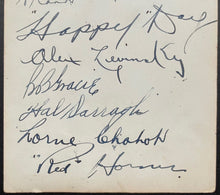 "Happy" Day
Alex Levinsky
Hal Darragh
Lorne Chabot
"Red" Horner